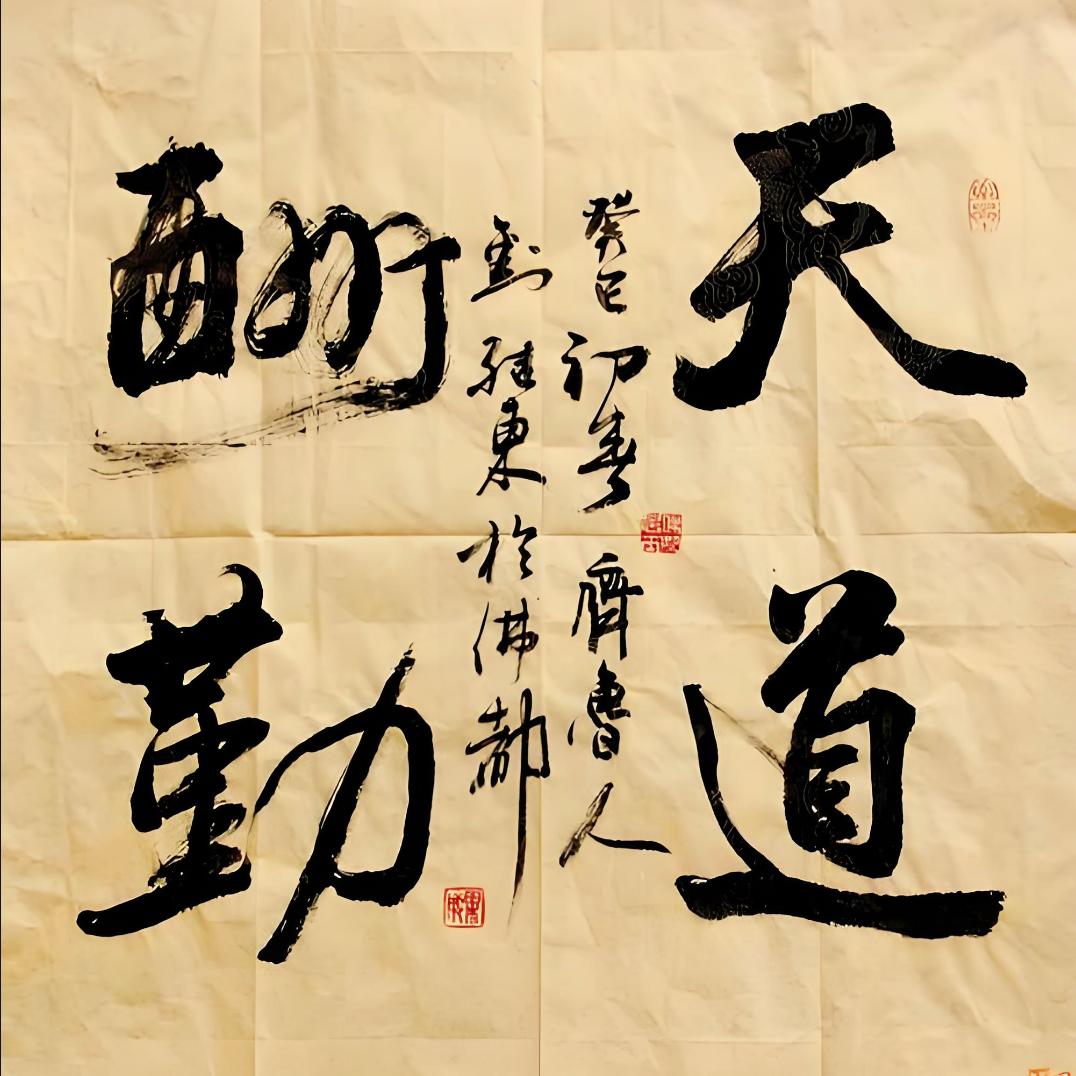 天道
酬勤
癸巳初春 齊魯人
劉 東於佛都